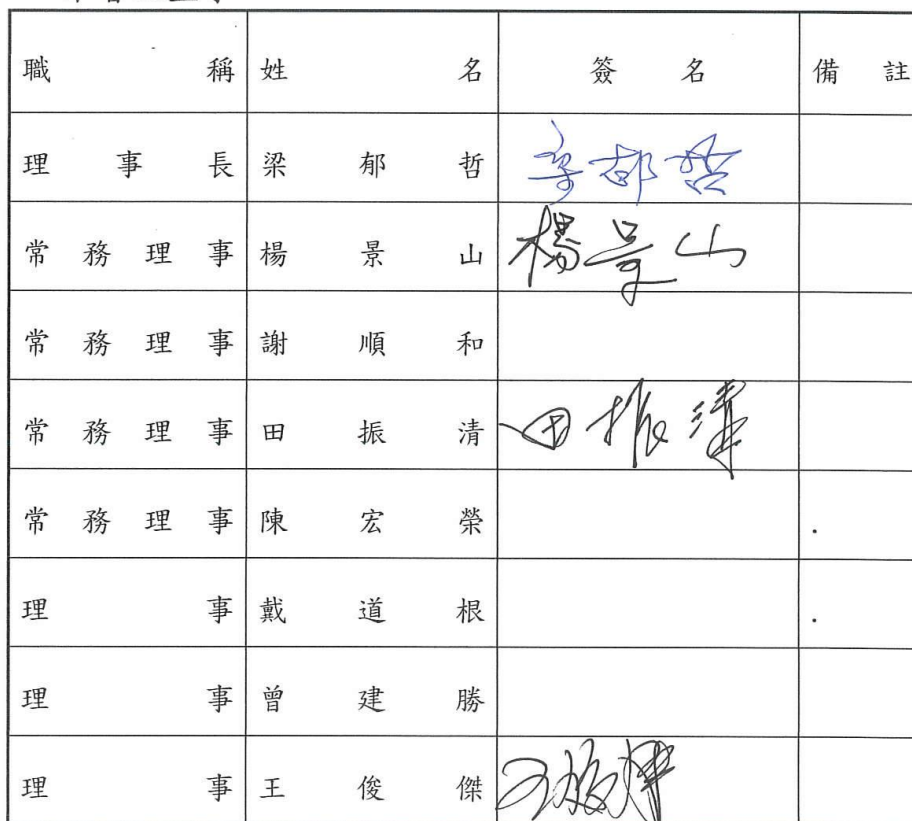 職稱 姓名 簽名 備註
理事長 梁郁哲 梁郁哲
常務理事 楊景山 楊景山
常務理事 謝順和
常務理事 田振清 田振清
常務理事 陳宏榮
理事 戴道根
理事 曾建勝
理事 王俊傑